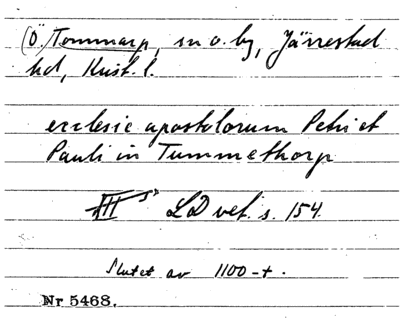 (Ö.) Tommarp, sn o. by, Järrestad
hd, Krist. l.
ecclesie apostolorum Petri et
Pauli in Tummethorp
LD vet. s. 154.
Slutet av 1100-t.
Nr 5468.